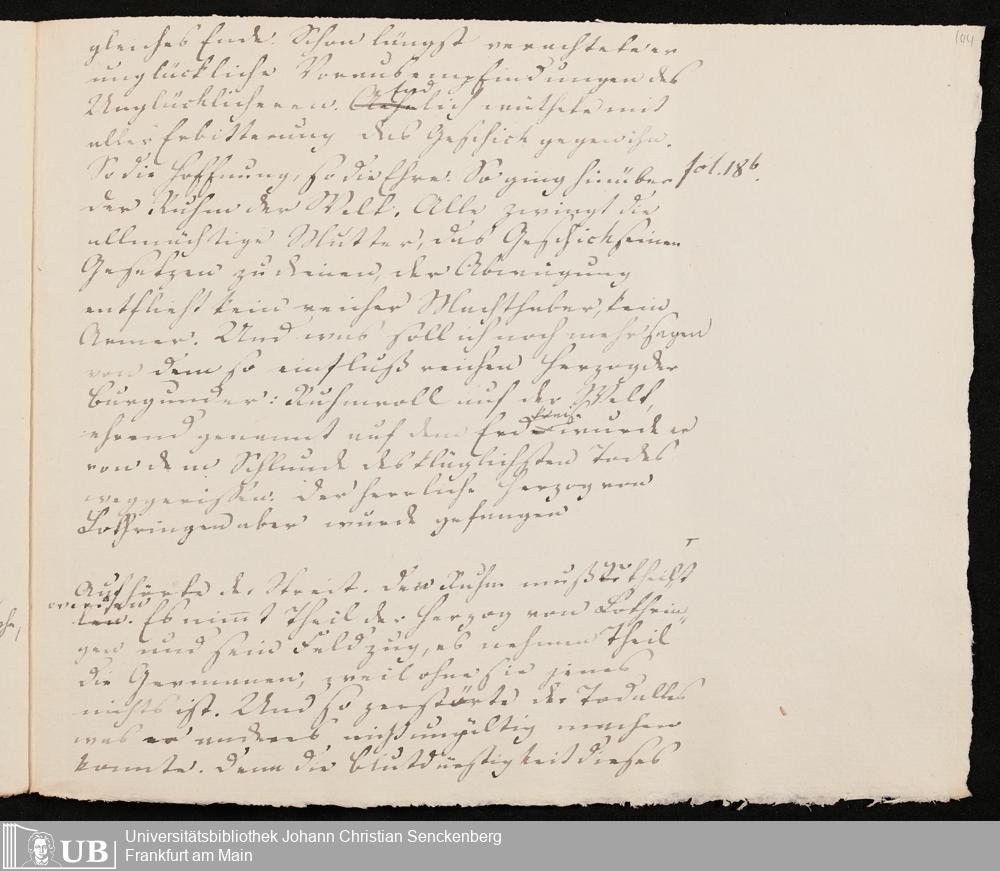 104
gleiches Ende. Schon längst verachtete er
unglückliche Vorausempfindungen des
Unglücklicheren. Endlich wüthete mit
aller Erbitterung das Geschick gegen ihn.
So die Hoffnung, so die Ehre. So ging hinüber fol. 18b.
der Ruhm der Welt. Alle zwingt die
allmächtige Mutter, das Geschick seinen
Gesetzen zu dienen, der Abwägung
entflieht kein reicher Machthaber, kein
Armer. Und was soll ich noch mehr sagen
von dem so einflußreichen Herzog der
Burgunder: Ruhmvoll auf der Welt,
ehrend genannt auf dem Erdkreise wurde er
von dem Schlunde des kläglichsten Todes
weggerissen. Der herrliche Herzog von
Lothringen aber wurde gefangen
Aufhörte der Streit. Der Ruhm muß getheilt
werden. Es nimt Theil der Herzog von Lothrin„
gen und sein Feldzug, es nehmen Theil
die Germanen, weil ohne sie jenes
nichts ist. Und so zerstörte der Tod alles
was er anders nicht ungültig machen
konnte. Denn die Blutdürstigkeit dieses
UB
Universitätsbibliothek Johann Christian Senckenberg
Frankfurt am Main